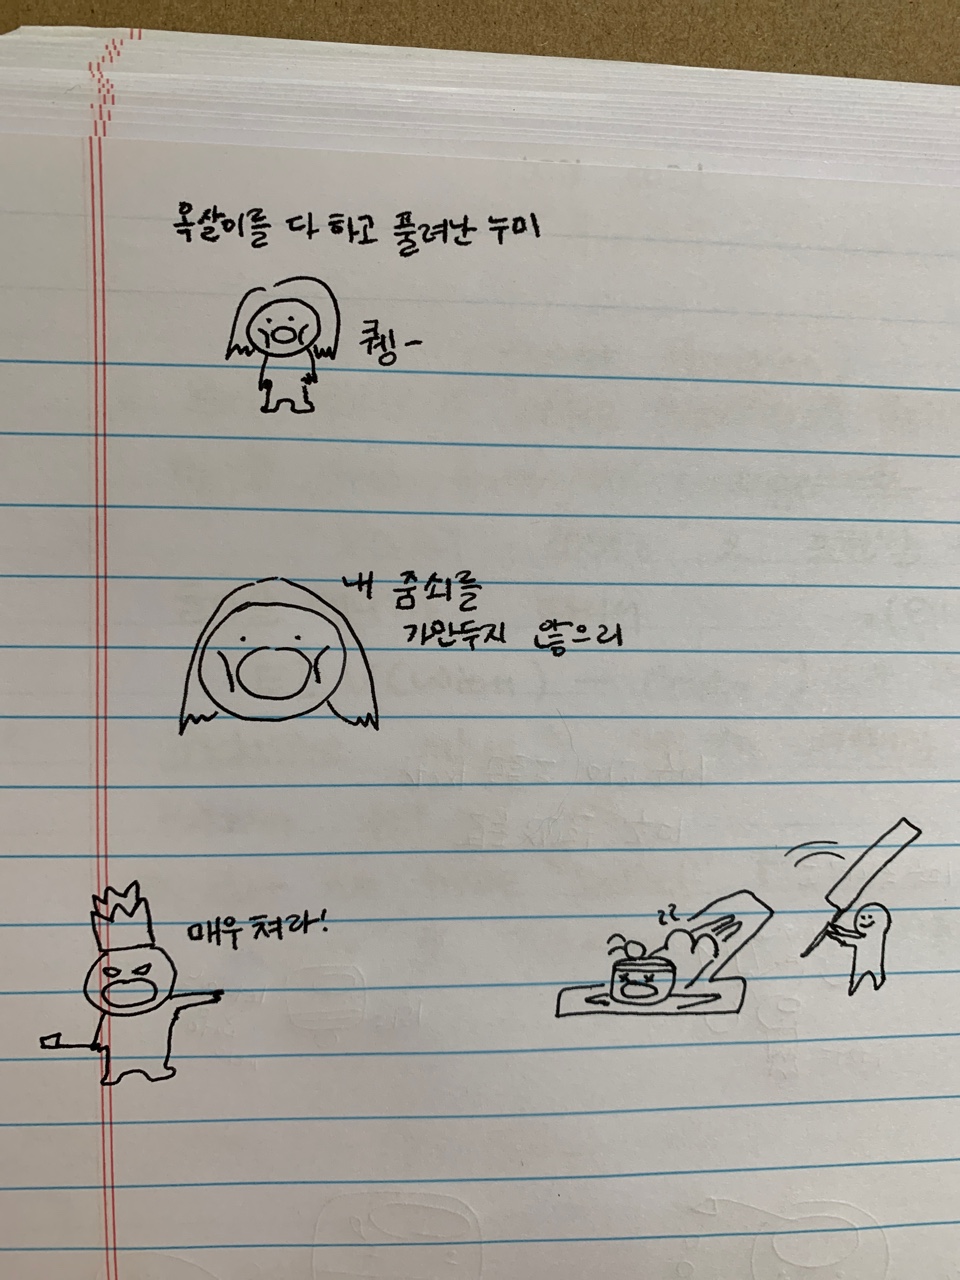 옥살이를 다 하고 풀려난 누미
퀭-
내 줌쇠를
가만두지 않으리
매우 쳐라!
zz